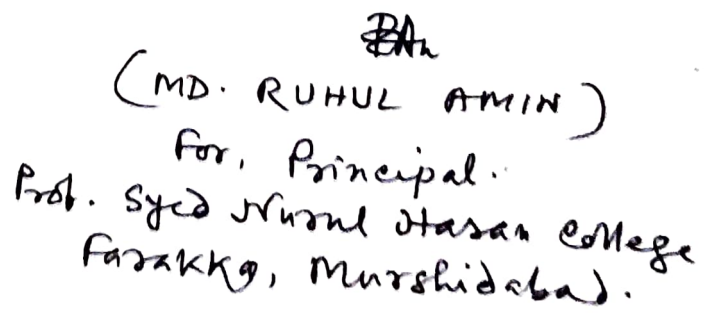 (MD. RUHUL AMIN)
For, Principal.
Prof. Syed Nurul Hasan College
Farakka, Murshidabad.